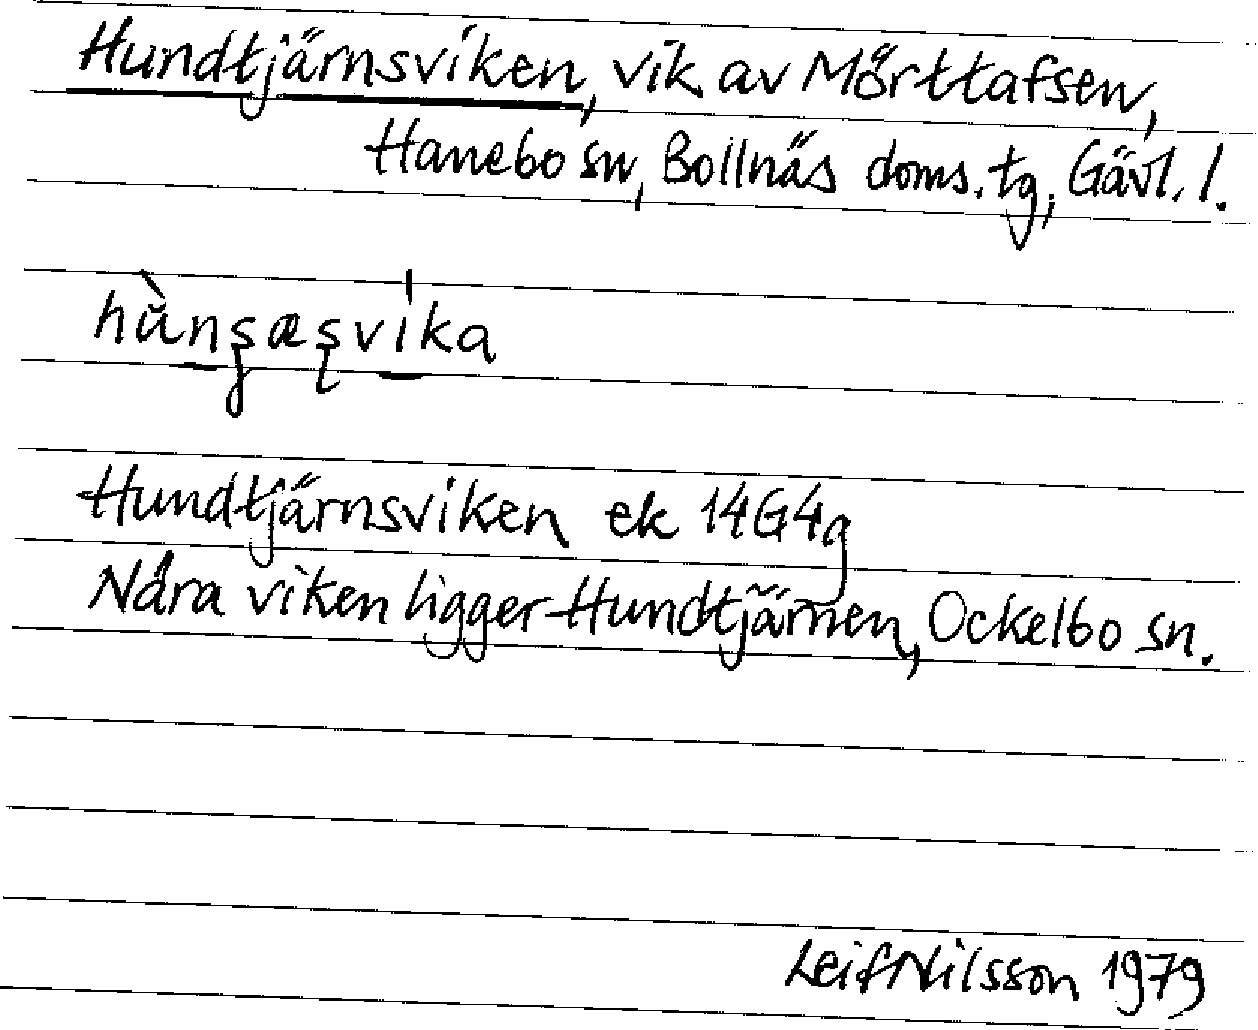 Hundtjärnsviken, vik av Mörttafsen,
Hanebo sn, Bollnäs doms. tg, Gävl. l.
Hundtjärnsviken ek 14G4g
Nära viken ligger Hundtjärnen, Ockelbo sn.
Leif Nilsson 1979